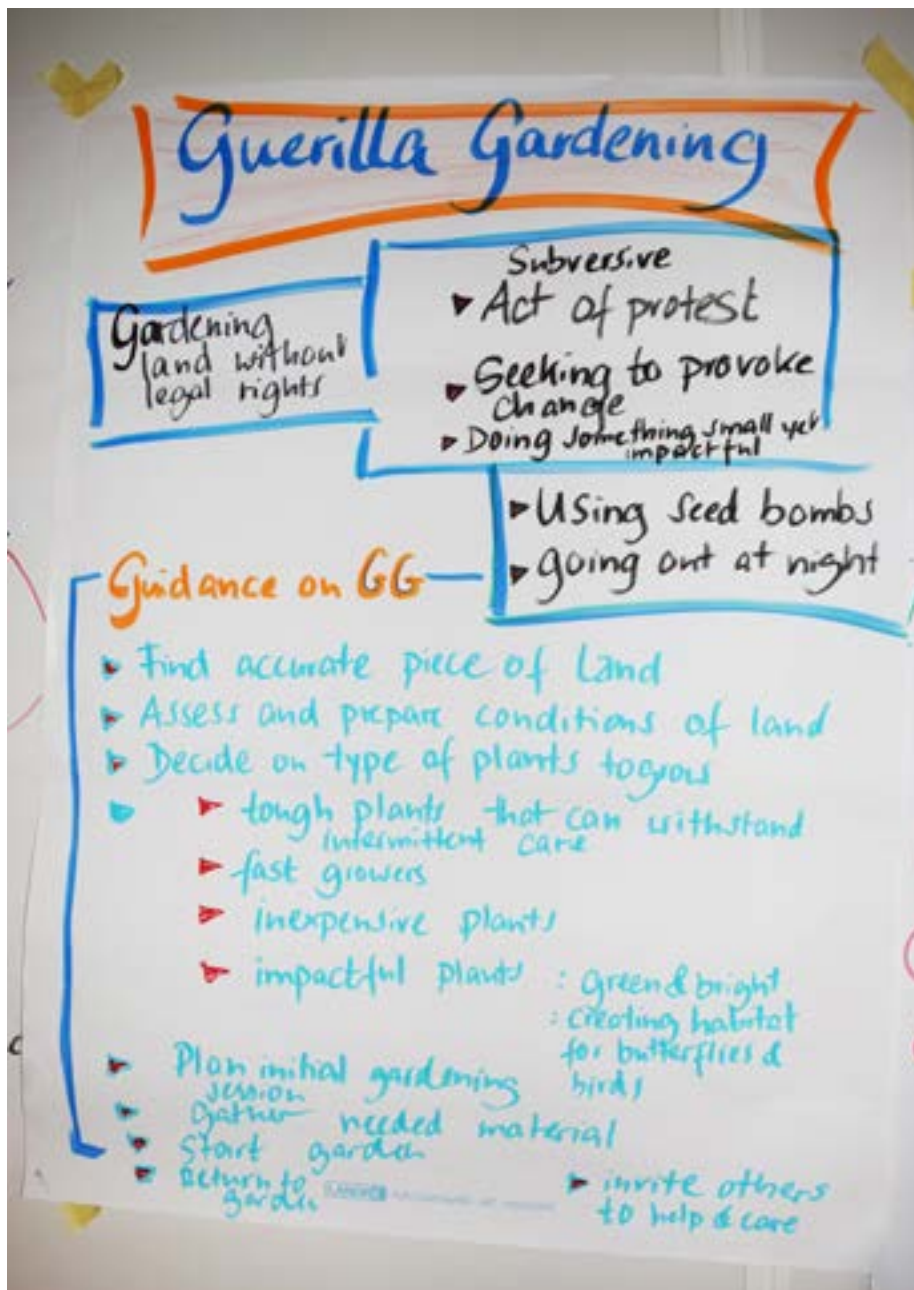 Guerilla Gardening
Gardening
land without
legal rights
Subversive
Act of protest
Seeking to provoke
change
Doing something small yet
impactful
Using seed bombs
going out at night
Guidance on GG
Find accurate piece of Land
Assess and prepare conditions of land
Decide on type of plants to grow
tough plants that can withstand
intermittent care
fast growers
inexpensive plants
impactful plants : Green & bright
: creating habitat
for butterflies &
birds
Plan initial gardening
session
Gather needed material
Start garden
Return to
garden
invite others
to help & care